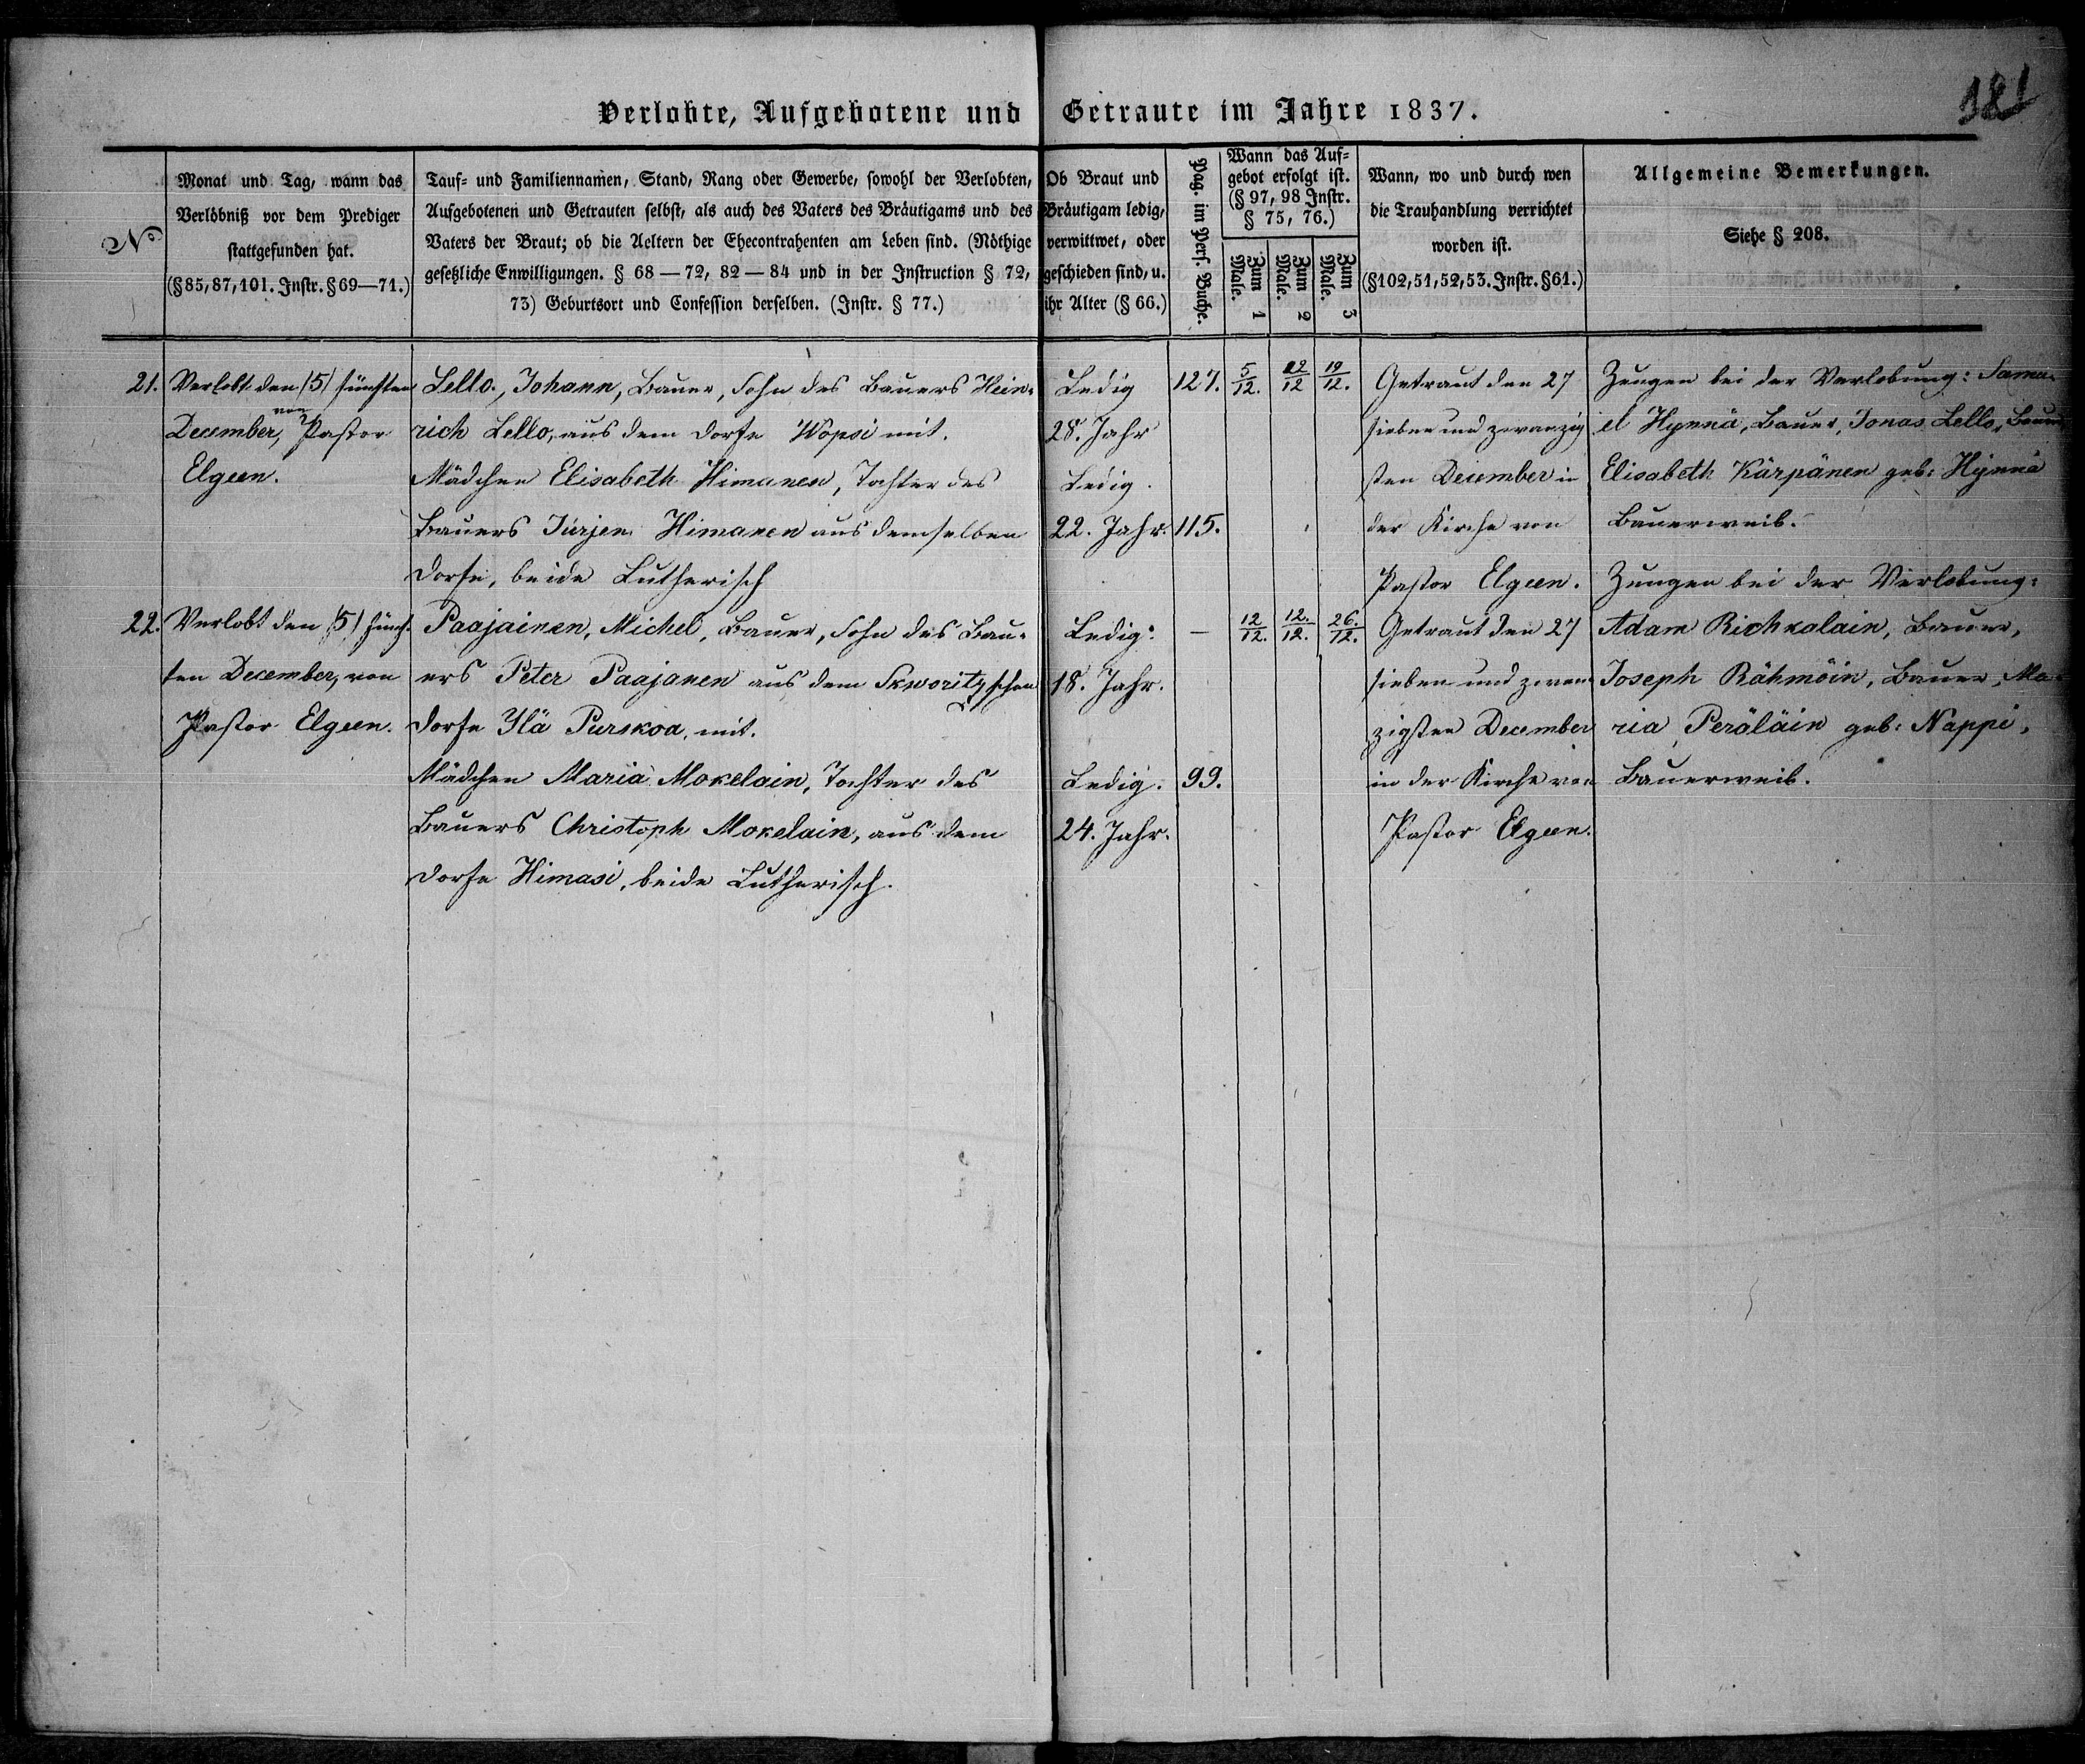 181
Verlobte, Aufgebotene und Getraute im Jahre 1837.
№
Monat und Tag, wann das
Verlöbniß vor dem Prediger
stattgefunden hat.
(§ 85, 87, 101. Instr. § 69—71.)
Tauf- und Familiennamen, Stand, Rang oder Gewerbe, sowohl der Verlobten,
Aufgebotenen und Getrauten selbst, als auch des Vaters des Bräutigams und des
Vaters der Braut; ob die Aeltern der Ehecontrahenten am Leben sind. (Nöthige
gesetzliche Enwilligungen. § 68—72, 82—84 und in der Instruction § 72,
73) Geburtsort und Confession derselben. (Instr. § 77.)
Ob Braut und
Bräutigam ledig,
verwittwet, oder
geschieden sind, u.
ihr Alter (§ 66.)
Pag. im Pers. Buche.
Wann das Auf-
gebot erfolgt ist.
(§ 97, 98 Instr.
§ 75, 76.)
Zum 1 Male.
Zum 2 Male.
Zum 3 Male.
Wann, wo und durch wen
die Trauhandlung verrichtet
worden ist.
(§102, 51, 52, 53. Instr. §61.)
Allgemeine Bemerkungen.
Siehe § 208.
21.
Verlobt den (5) fünften
December, von Pastor
Elgeen.
Lello, Johann, Bauer, Sohn des Bauers Hein-
rich Lello, aus dem Dorfe Wopsi mit.
Mädchen Elisabeth Himanen, Tochter des
Bauers Jürjen Himanen aus demselben
Dorfe, beide Lutherisch
Ledig
28. Jahr
Ledig.
22. Jahr.
127.
115.
5/12.
12/12
19/12.
Getraut den 27
sieben und zwanzig
sten December in
der Kirche von
Pastor Elgeen.
Zeugen bei der Verlobung: Samu-
el Hynnä, Bauer, Jonas Lello, Bauer
Elisabeth Kärpänen geb: Hynnä
Bauerweib.
22.
Verlobt den (5) fünf-
ten December, von
Pastor Elgeen.
Paajainen, Michel, Bauer, Sohn des Bau-
ers Peter Paajanen aus dem Skworitzschen
Dorfe Ylä Purskoa, mit.
Mädchen Maria Mokelain, Tochter des
Bauers Christoph Mokelain, aus dem
Dorfe Himasi, beide Lutherisch.
Ledig.
18. Jahr.
Ledig.
24. Jahr.
—
99.
12/12.
12./12.
26./12.
Getraut den 27
sieben und zwan
zigsten December
in der Kirche von
Pastor Elgeen.
Zeugen bei der Verlobung:
Adam Richkalain, Bauer,
Joseph Rähmöin, Bauer, Ma-
ria Peräläin geb: Nappi,
Bauerweib.